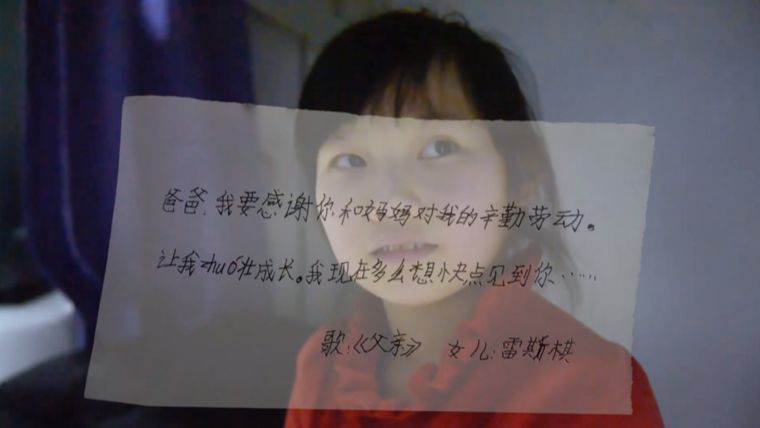 爸爸,我要感谢你和妈妈对我的辛勤劳动。
让我zhuó壮成长。我现在多么想快点见到你……
歌:《父亲》 女儿:雷斯棋